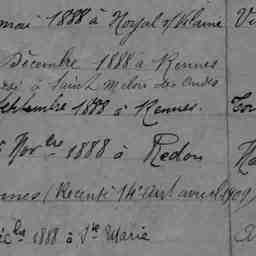 mai 1888 à Noyal s/Vilaine Vi
Décembre 1888 à Rennes
à Saint Meloir des Ondes
Septembre 1888 à Rennes.
Nov bre 1888 à Redon
nnes (Recensé 14e art avril 1909)
Déc bre 1888 à Ste Marie